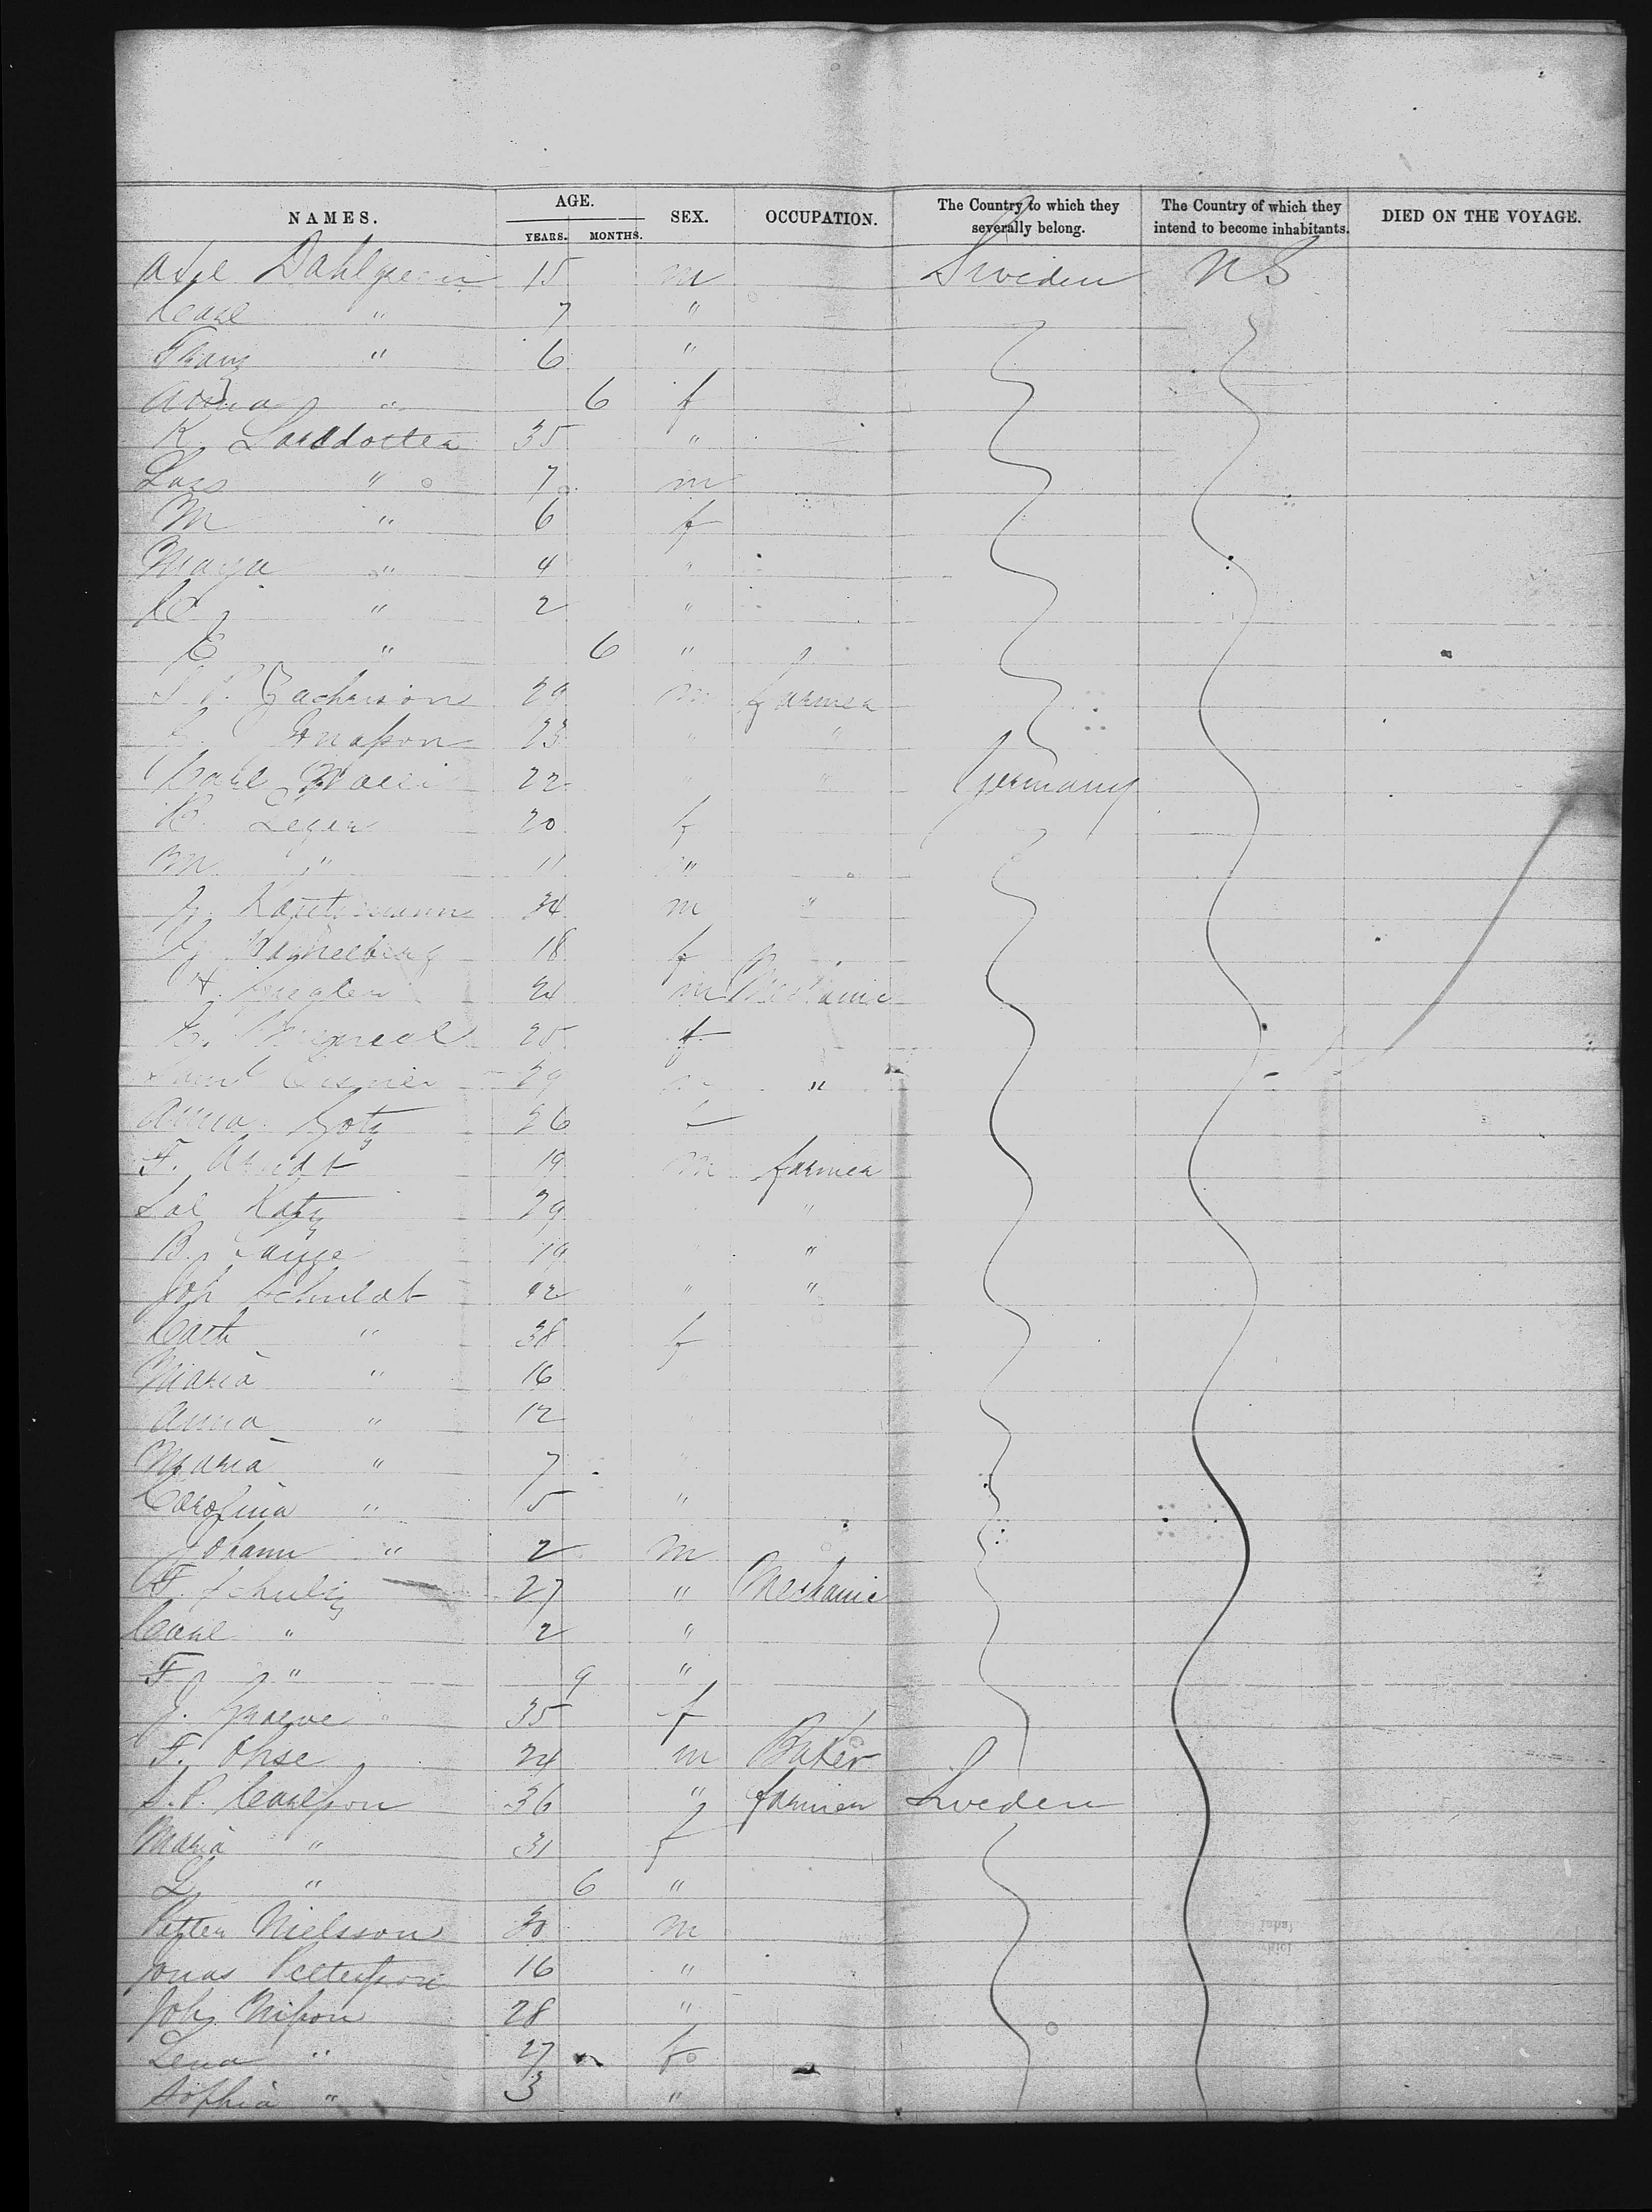 NAMES. AGE. YEARS. MONTHS. SEX. OCCUPATION. The Country to which they severally belong. The Country of which they intend to become inhabitants. DIED ON THE VOYAGE.
Axel Dahlgreen 15 m Sweden US
Carl " 7 "
Franz " 6 "
Anna " 6 f
K. Larsdotter 35 "
Lars " 7 m
M " 6 f
Maya " 4 "
" 2 "
E " 6 "
S. P. Zacherson 29 m farmer
Jonasson 23 " "
Carl 22 " " Germany
Leger 20 f
M " 11 "
34 m "
18 f
H. 24 m Mechanic
25 f
29 m "
Anna Gotz 26 f
F. Arndt 19 m farmer
Sal Katz 29 "
B. Lange 19 "
Joh Schuldt 42 " "
Cath " 38 f
Maria " 16
Anna " 12
Maria " 7 "
Carolina " 5 "
Johann " 2 m
F. Schultz 27 " Mechanic
Carl " 2 "
F " 9 "
J. Graeve 35 f
F. Ohse 24 m Baker
S. P. Carlsson 36 " farmer Sweden
Maria " 31 f
L " 6 "
Petter Nielsson 30 m
Jonas Pettersson 16 "
Joh. Nisson 28 "
Lena " 27 f
Sophia " 3 "